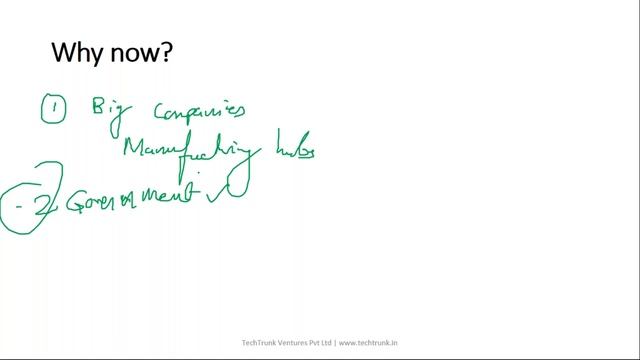 Why now?
1 Big Companies
Manufuching hubs
2 Government
TechTrunk Ventures Pvt Ltd | www.techtrunk.in